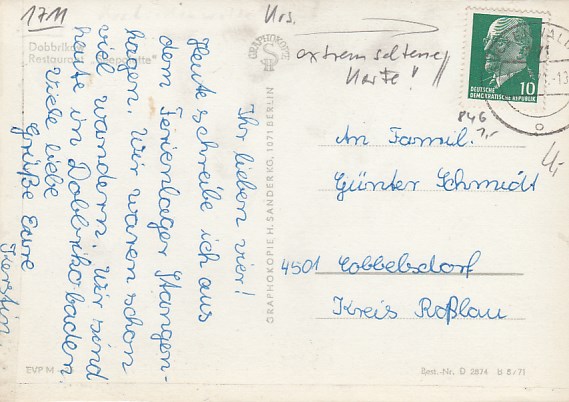 1711
Urs.
extrem seltene
Karte!
Dobbrikow
Restaurant
Ihr lieben vier!
Heute schreibe ich aus
dem Ferienlager Stangen-
hagen. Wir waren schon
viel wandern. Wir sind
heute in Dobbriko baden.
Viele liebe
Grüße Eure
Kerstin
EVP M
GRAPHOKOPIE
GRAPHOKOPIE H. SANDER KG, 1071 BERLIN
DEUTSCHE
DEMOKRATISCHE REPUBLIK
10
846
1,-
4,-
An Famil.
Günter Schmidt
4501 Cobbelsdorf
Kreis Roßlau
Best.-Nr. D 2874 b 8/71